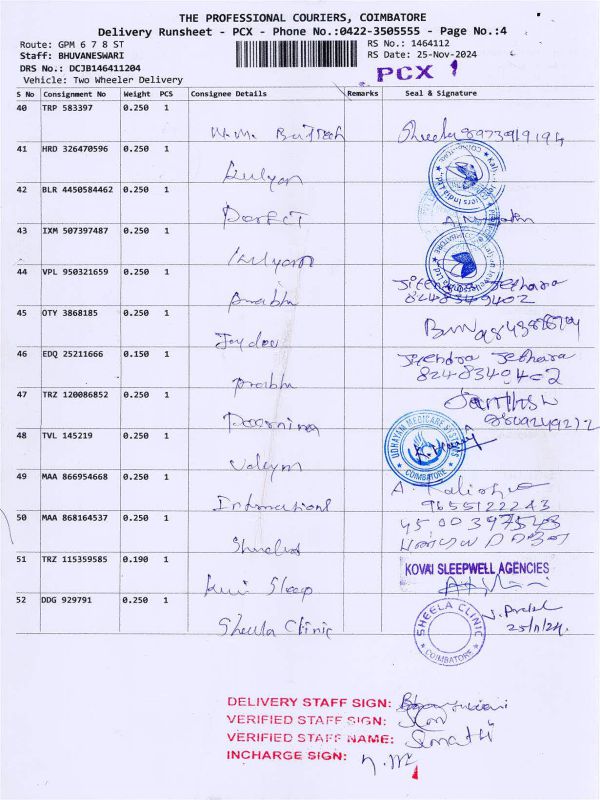 THE PROFESSIONAL COURIERS, COIMBATORE
Delivery Runsheet - PCX - Phone No.:0422-3505555 - Page No.:4
Route: GPM 6 7 8 ST
RS No.: 1464112
Staff: BHUVANESWARI
RS Date: 25-Nov-2024
DRS No.: DCJB146411204
PCX 1
Vehicle: Two Wheeler Delivery
S No Consignment No Weight PCS Consignee Details Remarks Seal & Signature
40 TRP 583397 0.250 1
Sheela 8973919194
41 HRD 326470596 0.250 1
Kulyan
42 BLR 4450584462 0.250 1
43 IXM 507397487 0.250 1
Kulyan
44 VPL 950321659 0.250 1
Prabhu Jitendra Jethara
8248349402
45 OTY 3868185 0.250 1
Joy dee
46 EDQ 25211666 0.150 1
Prabhu Jitendra Jethara
8248349402
47 TRZ 120086852 0.250 1
Poornima
48 TVL 145219 0.250 1
UDHAYAM MEDICARE SYSTEMS
COIMBATORE
Udaym
49 MAA 866954668 0.250 1
International 9655122243
50 MAA 868164537 0.250 1
51 TRZ 115359585 0.190 1
KOVAI SLEEPWELL AGENCIES
Sleep
52 DDG 929791 0.250 1
Sheela Clinic
SHEELA CLINIC
COIMBATORE
25/11/24.
DELIVERY STAFF SIGN:
VERIFIED STAFF SIGN:
VERIFIED STAFF NAME: Sumathi
INCHARGE SIGN: